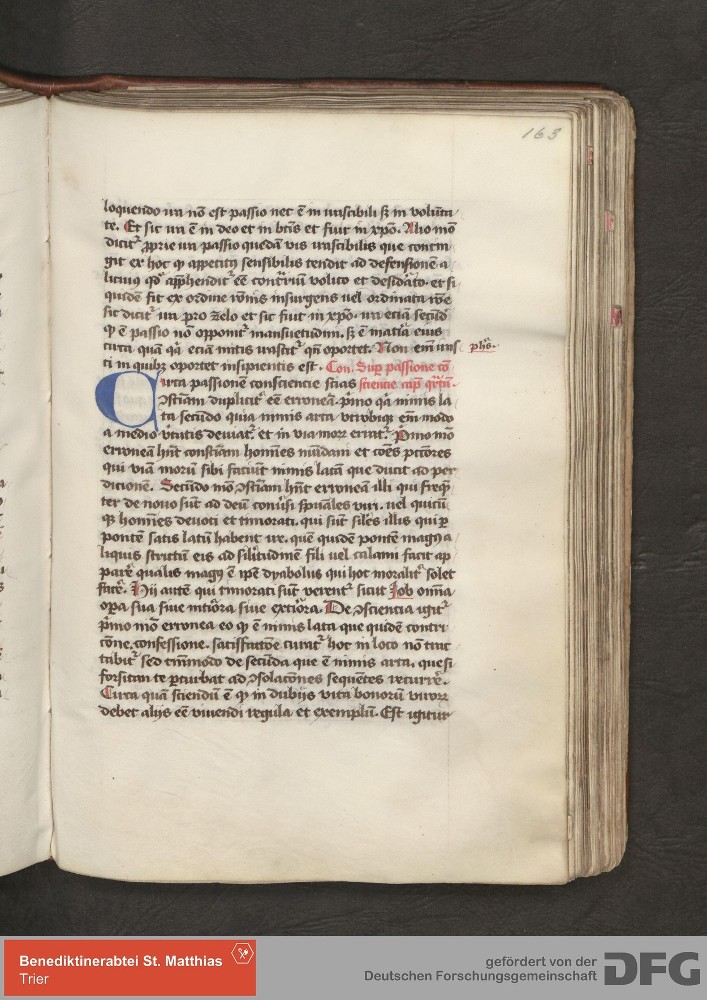 163
loquendo ira nō est passio nec ē in irascibili sʒ in volūta-
te. Et sic ira ē in deo et in btīs et fuit in xp̄o. Alio mō
dicitʳ ꝓprie ira passio quedā vis irascibilis que contin
git ex hoc ꝙ appetitꝰ sensibilis tendit ad defensionē a
licuiꝰ qd̓ app̄henditʳ eē cont̓riū volito et desid̓ato. et si
quidē fit ex ordine rōnis insurgens uel ordinata rōe
sic dicitʳ ira pro zelo et sic fuit in xp̄o. ira eciā secūdo
ꝙ ē passio nō opponitʳ mansuetudini. sʒ ē mat̓ia eius
circa quā qͣ eciā mitis irascitʳ qn̄ oportet. Non eīm iras
phs̄.
ci in quibꝫ oportet insipientis est. Con. Suꝑ passione cō
Circa passionē conscientie scias scientie cap̄
ↄsciam duplicitʳ eē erroneā. p̓mo qͣ nimis la
ta secūdo quia nimis arta vtrobiqꝫ eīm modo
a medio v̓tutis deuiatʳ et in via moꝝ erratʳ. P̓mo mō
erroneā hn̄t consciam homines mūdani et cōēs pc̄cores
qui viā morū sibi faciūt nimis latā que ducit ad per
dicionē. Secūdo mō ↄsciam hn̄t erroneā illi qui freqn̄
ter de nouo sūt ad deū conu̓si sp̄uales viri. uel quicū
qꝫ homines deuoti et timorati. qui sūt siles illis qui ꝑ
pontē satis latū habent ire. quē quidē pontē magꝰ a
liquis strictū eis ad silitudinē fili uel calami facit ap
parē̓ qualis magꝰ ē ip̄e dyabolus qui hoc moralitʳ solet
facē̓. Hij autē qui timorati sūt verentʳ sicut Job omīa
oꝑa sua siue int̓iora siue ext̓iora. De ↄscientia igitʳ
p̓mo mō erronea eo ꝙ ē nimis lata que quidē contri
cōne. confessione. satisfactōe curatʳ hoc in loco nō trac
tabitʳ sed tm̄modo de secūda que ē nimis arta. que si
forsitan te ꝑturbat ad ↄsolacōnes sequētes recurrē̓.
Circa quā sciendū ē ꝙ in dubijs vita bonorū viroꝝ
debet alijs eē viuendi regula et exemplū. Est igitur
Benediktinerabtei St. Matthias
Trier
gefördert von der
Deutschen Forschungsgemeinschaft
DFG